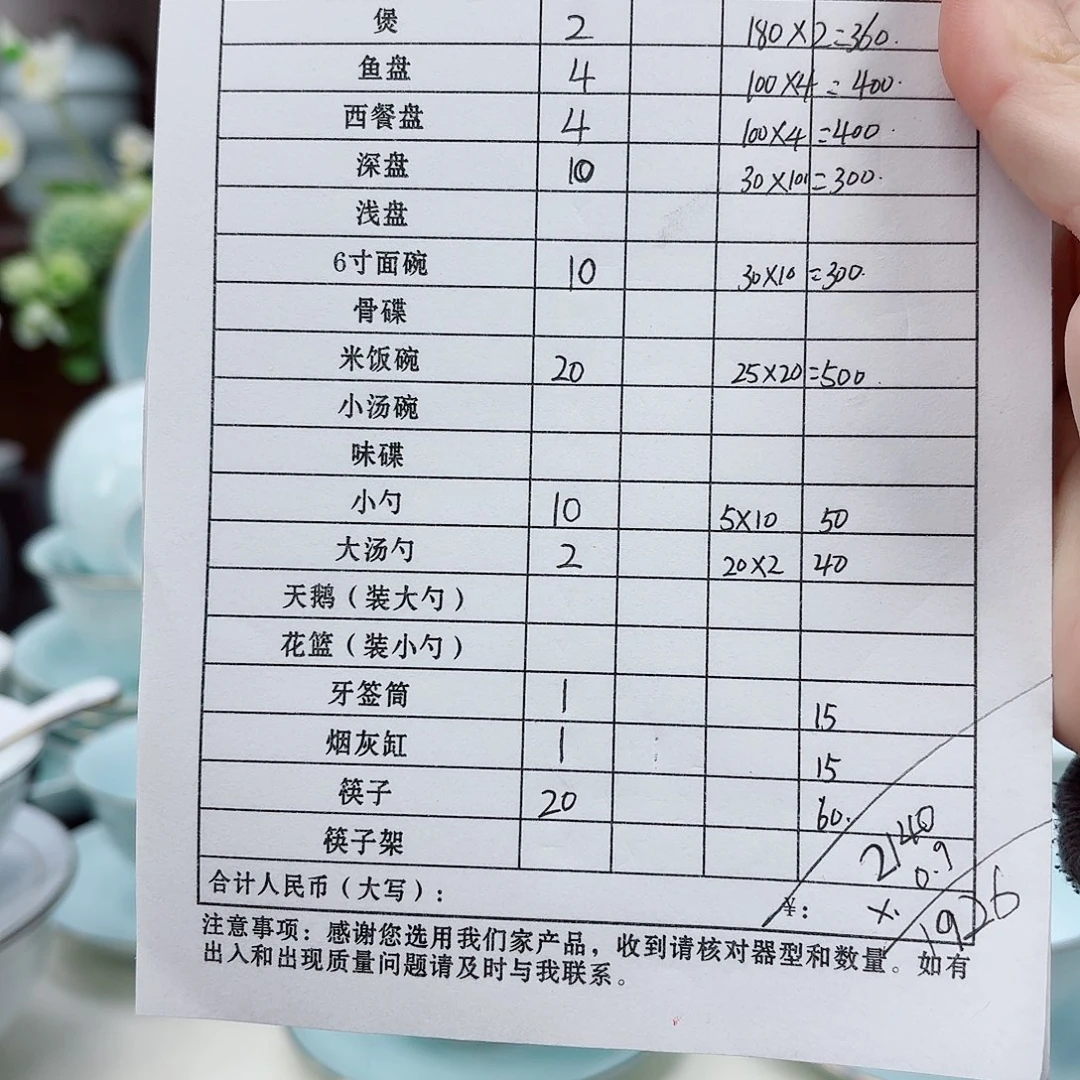 煲 2 180×2=360.
鱼盘 4 100×4=400.
西餐盘 4 100×4=400.
深盘 10 30×10=300.
浅盘
6寸面碗 10 30×10=300.
骨碟
米饭碗 20 25×20=500.
小汤碗
味碟
小勺 10 5×10 50
大汤勺 2 20×2 40
天鹅（装大勺）
花篮（装小勺）
牙签筒 1 15
烟灰缸 1 15
筷子 20 60.
筷子架
2140
× 0.9
合计人民币（大写）： ¥：
1926
注意事项：感谢您选用我们家产品，收到请核对器型和数量。如有
出入和出现质量问题请及时与我联系。